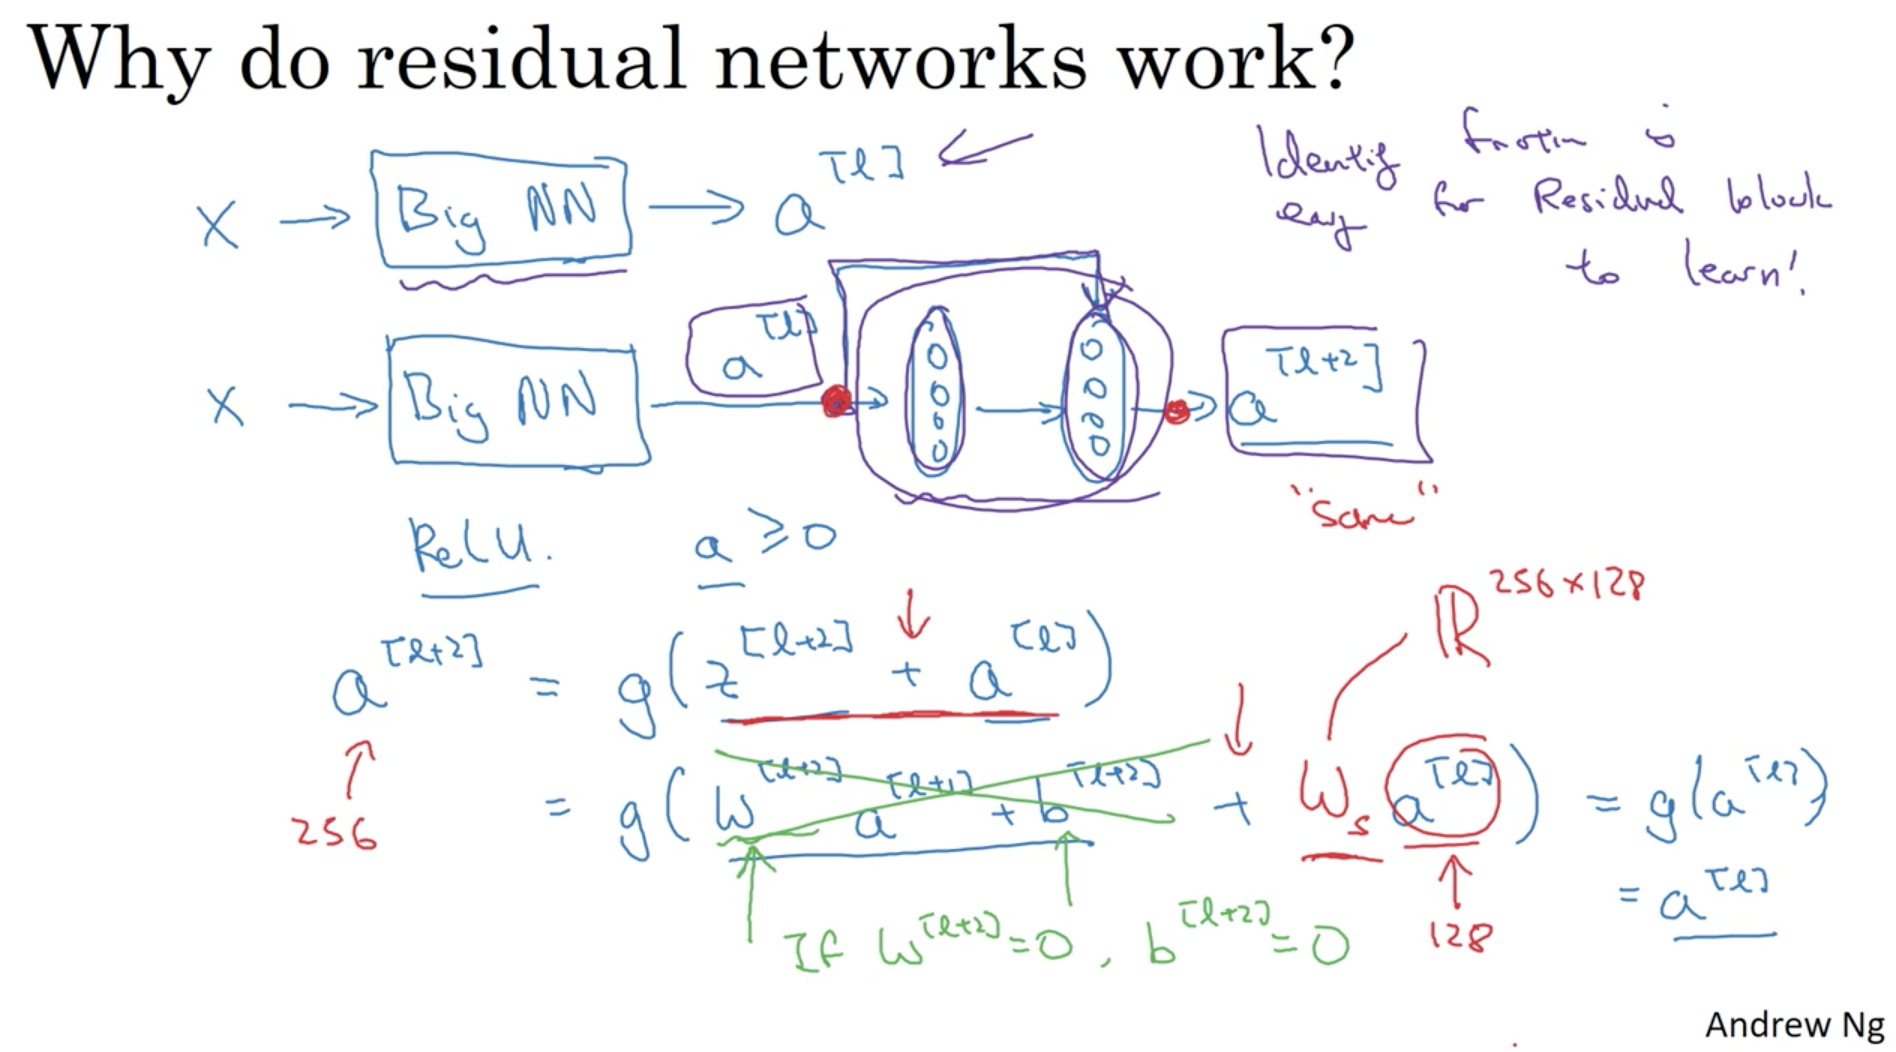 Why do residual networks work?
Identity function is
easy for Residual block
to learn!
X → Big NN → a^[l]
X → Big NN → a^[l] → → a^[l+2]
"Same"
ReLU. a ≥ 0
ℝ^256×128
a^[l+2] = g(z^[l+2] + a^[l])
= g(W^[l+2] a^[l+1] + b^[l+2] + W_s a^[l]) = g(a^[l])
256
= a^[l]
If W^[l+2] = 0, b^[l+2] = 0
128
Andrew Ng